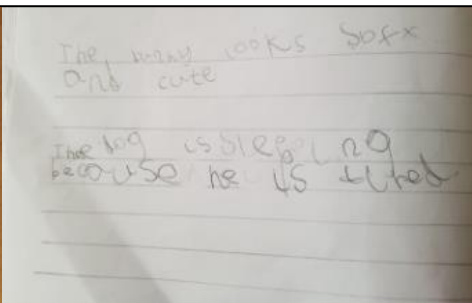 The bunny looks sofx
and cute
The dog is sleeping
because he is tired